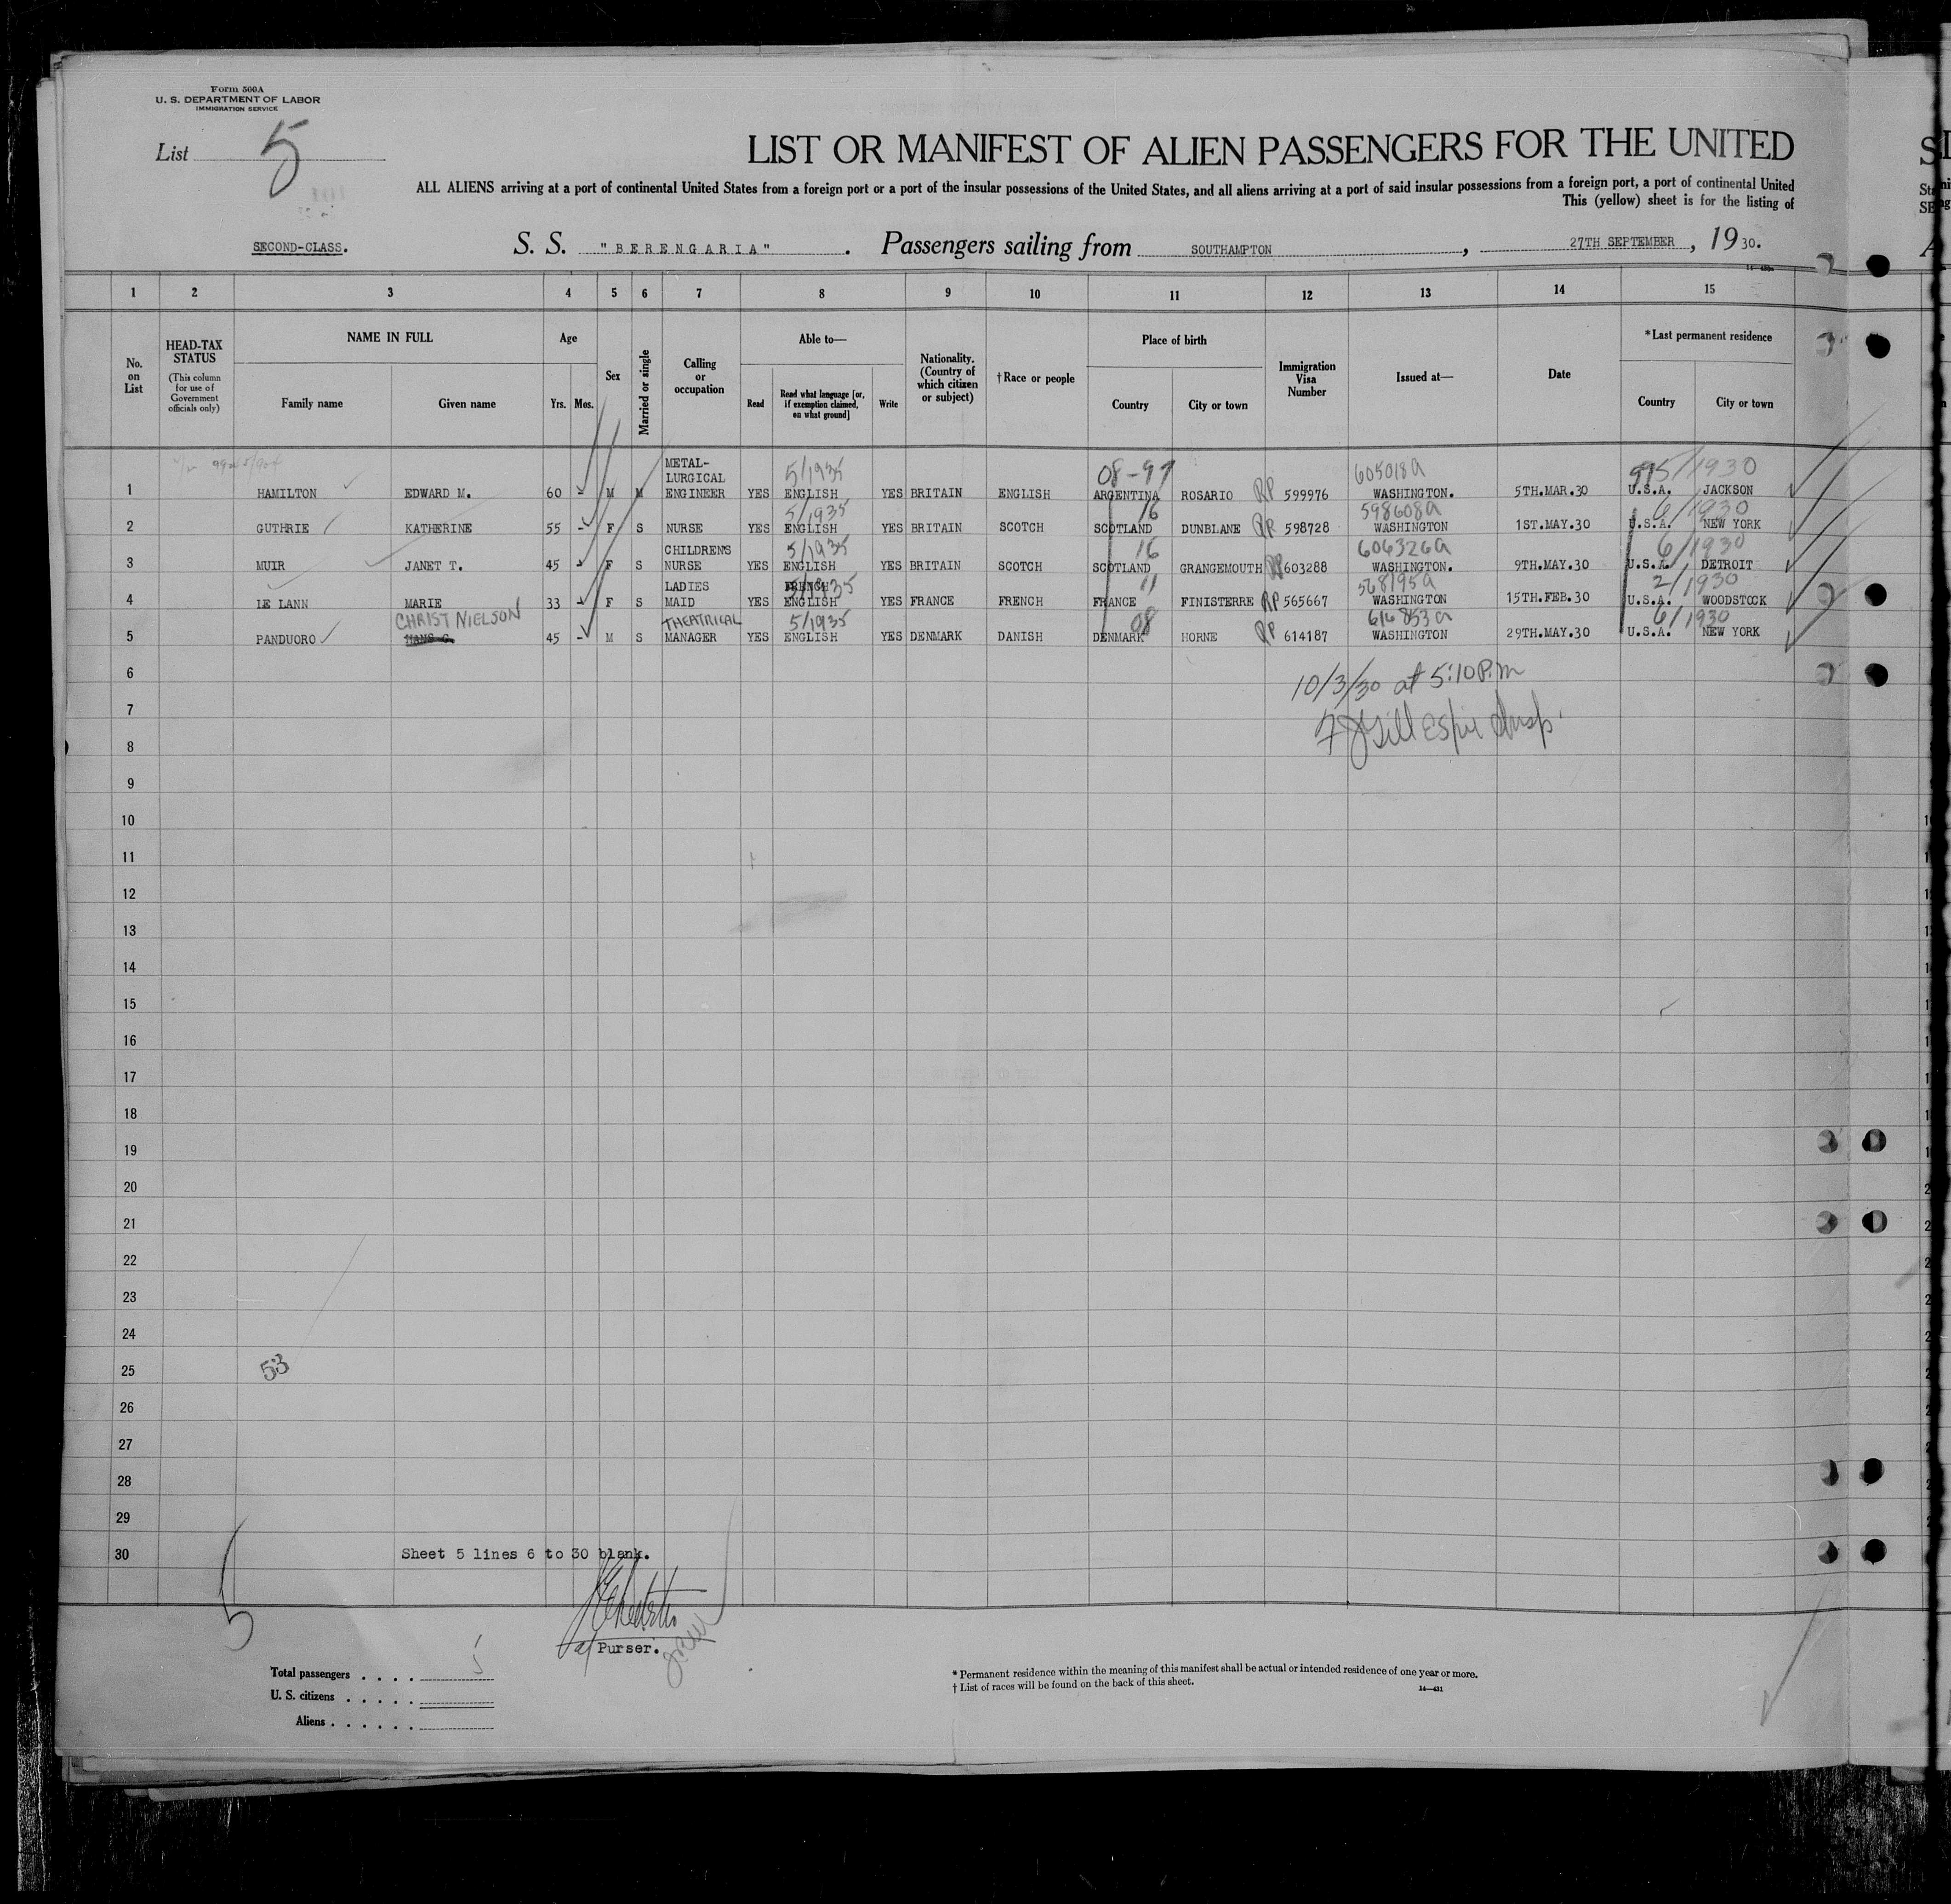 Form 500A
U. S. DEPARTMENT OF LABOR
IMMIGRATION SERVICE
List 5
LIST OR MANIFEST OF ALIEN PASSENGERS FOR THE UNITED
ALL ALIENS arriving at a port of continental United States from a foreign port or a port of the insular possessions of the United States, and all aliens arriving at a port of said insular possessions from a foreign port, a port of continental United
This (yellow) sheet is for the listing of
SECOND-CLASS. S. S. "BERENGARIA". Passengers sailing from SOUTHAMPTON, 27TH SEPTEMBER, 1930.
1 2 3 4 5 6 7 8 9 10 11 12 13 14 15
No. on List
HEAD-TAX STATUS
(This column for use of Government officials only)
NAME IN FULL
Family name Given name
Age
Yrs. Mos.
Sex
Married or single
Calling or occupation
Able to—
Read Read what language [or, if exemption claimed, on what ground] Write
Nationality. (Country of which citizen or subject)
†Race or people
Place of birth
Country City or town
Immigration Visa Number
Issued at—
Date
*Last permanent residence
Country City or town
5/1935 08-97 605018a 5/1930
1 HAMILTON EDWARD M. 60 - M M METAL-LURGICAL ENGINEER YES ENGLISH YES BRITAIN ENGLISH ARGENTINA ROSARIO RP 599976 WASHINGTON. 5TH.MAR.30 U.S.A. JACKSON
5/1935 16 598608a 6/1930
2 GUTHRIE KATHERINE 55 - F S NURSE YES ENGLISH YES BRITAIN SCOTCH SCOTLAND DUNBLANE RP 598728 WASHINGTON 1ST.MAY.30 U.S.A. NEW YORK
5/1935 16 606326a 6/1930
3 MUIR JANET T. 45 - F S CHILDRENS NURSE YES ENGLISH YES BRITAIN SCOTCH SCOTLAND GRANGEMOUTH RP 603288 WASHINGTON. 9TH.MAY.30 U.S.A. DETROIT
11 568195a 2/1930
4 LE LANN MARIE 33 - F S LADIES MAID YES FRENCH ENGLISH YES FRANCE FRENCH FRANCE FINISTERRE RP 565667 WASHINGTON 15TH.FEB.30 U.S.A. WOODSTOCK
CHRIST NIELSON THEATRICAL 5/1935 08 616853a 6/1930
5 PANDUORO HANS C. 45 - M S MANAGER YES ENGLISH YES DENMARK DANISH DENMARK HORNE RP 614187 WASHINGTON 29TH.MAY.30 U.S.A. NEW YORK
6
10/3/30 at 5:10 P.m
7
F J Gillespie Insp.
8
9
10
11
12
13
14
15
16
17
18
19
20
21
22
23
24
25
53
26
27
28
29
30 Sheet 5 lines 6 to 30 blank.
5
Purser.
Total passengers . . . . 5
U. S. citizens . . . . .
Aliens . . . . . .
* Permanent residence within the meaning of this manifest shall be actual or intended residence of one year or more.
† List of races will be found on the back of this sheet.
14—431